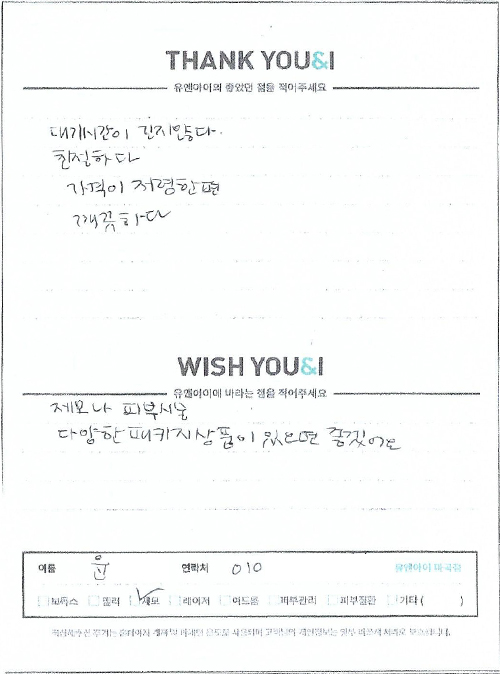 THANK YOU&I
유앤아이의 좋았던 점을 적어주세요
대기시간이 길지않다.
친절하다
가격이 저렴한편
깨끗하다
WISH YOU&I
유앤아이에 바라는 점을 적어주세요
제모나 피부시술
다양한 패키지상품이 있으면 좋겠어요
이름 윤 연락처 010 유앤아이 마곡점
보톡스 필러 제모 레이저 여드름 피부관리 피부질환 기타 ( )